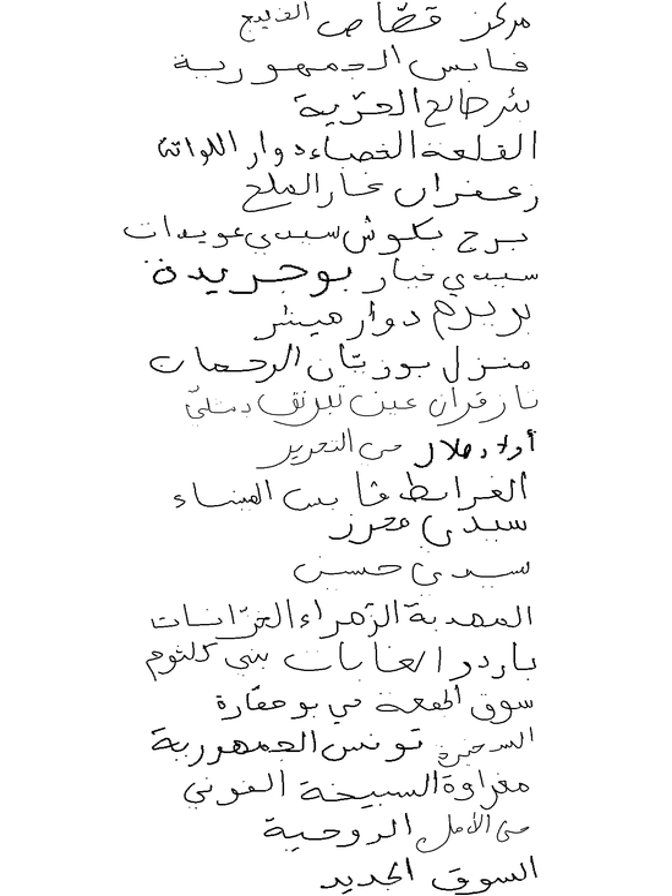 مركز قصّاص الفنيدع
قابس الجمهورية
بئر صالح الحرّية
القلعة الخصباء دوار اللواتة
زعفران غار الملح
برج بكوش سيدي عويدات
سيدي خيار بوجريدة
بريرم دوار هيشر
منزل بوزيّان الرحمان
تازقران عين تبرنق
أولاد هلال حي التحرير
الغرابط قابس الميناء
سيدي محرز
سيدي حسين
المهدية الزهراء الخزّانات
باردو الغابات بني كلثوم
سوق الجمعة حي بوحفارة
تونس الجمهورية
مغراوة السبيخة
حي الأمل الروحية
السوق الجديد